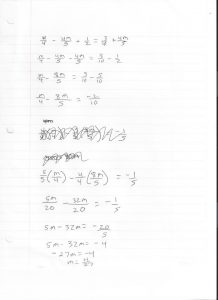 m/4 - 4m/5 + 1/2 = 3/10 + 4m/5
m/4 - 4m/5 - 4m/5 = 3/10 - 1/2
m/4 - 8m/5 = 3/10 - 5/10
m/4 - 8m/5 = -2/10
-1/5
5/5(m/4) - 4/4(8m/5) = -1/5
5m/20 - 32m/20 = -1/5
5m - 32m = -20/5
5m - 32m = -4
-27m = -4
m = 4/27